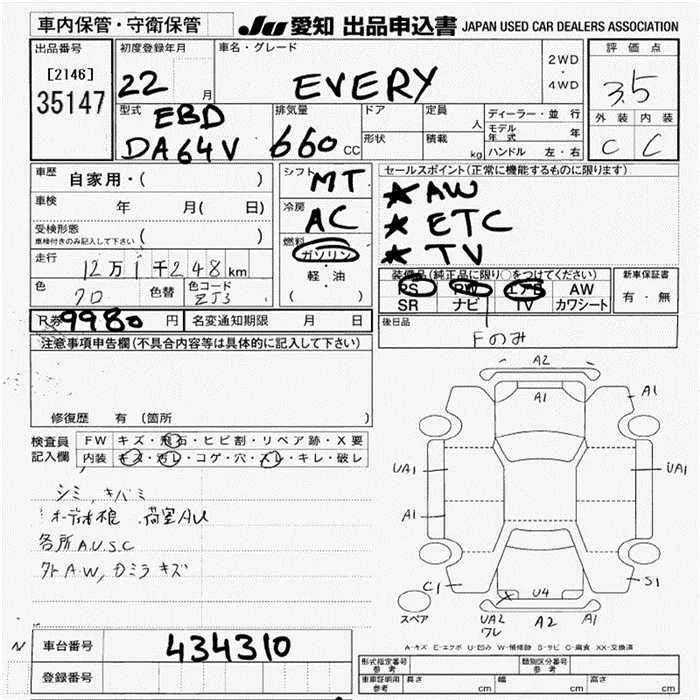 車内保管・守衛保管
JU 愛知 出品申込書 JAPAN USED CAR DEALERS ASSOCIATION
出品番号
[2146]
35147
初度登録年月
22 月
車名・グレード
EVERY
2WD
・
4WD
評価点
3.5
外装 内装
C C
型式
EBD
DA64V
排気量
660 CC
ドア
形状
定員 人
積載 kg
ディーラー・並行
モデル年式 年
ハンドル 左・右
車歴 自家用・( )
車検 年 月( 日)
受検形態
車検付きのみ記入して下さい ( )
走行 12万1千248km
色 色替 色コード
ZJ3
R券 9980 円 名変通知期限 月 日
シフト MT
冷房 AC
燃料
ガソリン
・
軽・油
( )
セールスポイント(正常に機能するものに限ります)
★AW
★ETC
★TV
装備品(純正品に限り○をつけてください)
PS PW エアB AW
SR ナビ TV カワシート
新車保証書
有・無
後日品
Fのみ
注意事項申告欄(不具合内容等は具体的に記入して下さい)
修復歴 有 (箇所
検査員
記入欄
FW キズ・飛石・ヒビ割・リペア跡・X要
内装 キズ・汚レ・コゲ・穴・スレ・キレ・破レ
シミ,キバミ
オーディオ 荷室AU
各所A.U.S.C
外A.W,ドミラキズ
A2
A1
A1
UA1
UA1
A1
C1
S1
U4
X
UA2
ワレ
A2
A1
スペア
A-キズ E-エクボ U-凹み W-補修跡 S-サビ C-腐食 XX-交換済
車台番号 434310
登録番号
型式指定番号
参考
類別区分番号
参考
車庫証明用
参考
長さ cm 幅 cm 高さ cm